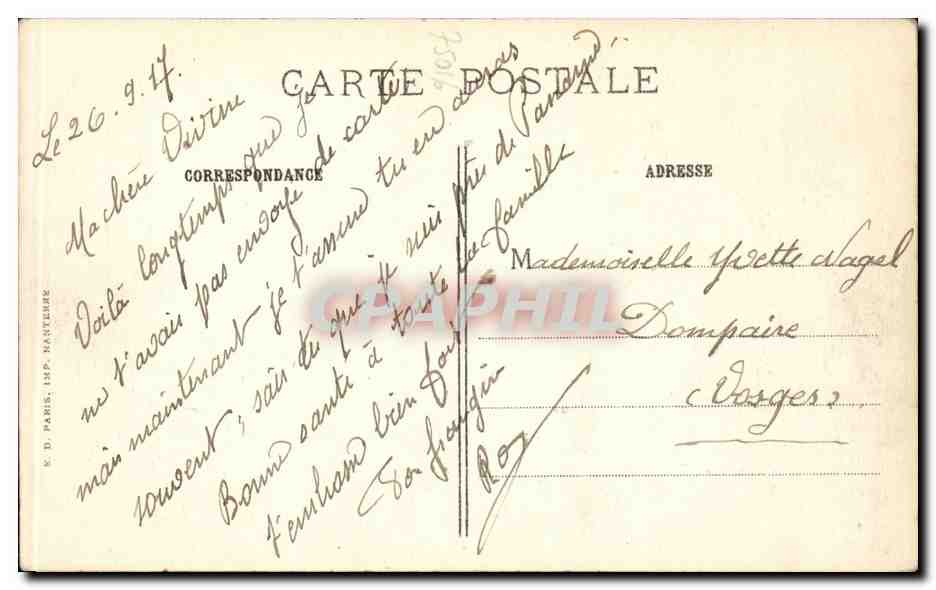 CARTE POSTALE
91057
CORRESPONDANCE
ADRESSE
Le 26.9.17.
Ma chère Divine
Voilà longtemps que je
ne t'avais pas envoyé de carte
mais maintenant je t'assure tu en auras
souvent; sais tu que je suis près de
Bonne santé à toute la famille
t'embrasse bien fort
Ton frangin
Roy
Mademoiselle Yvette Nagel
Dompaire
(Vosges)
CPAPHIL
E. D. PARIS, IMP. NANTERRE